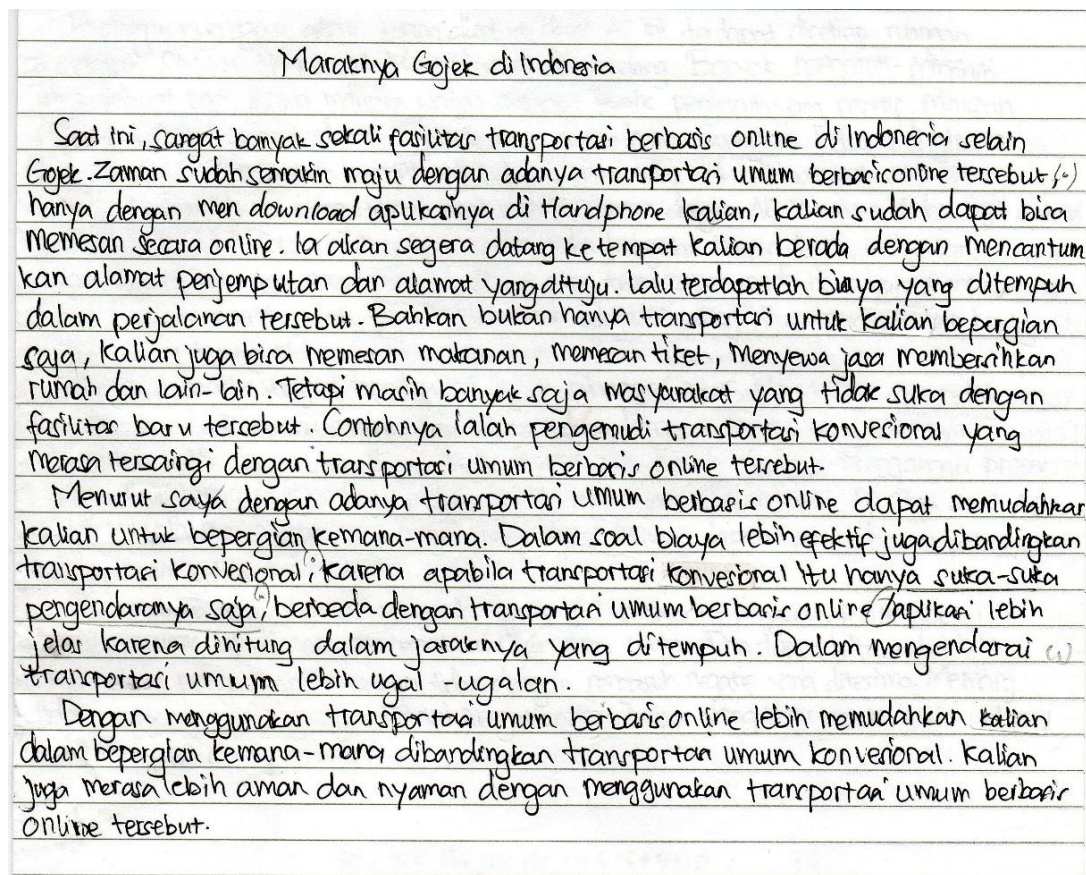 Maraknya Gojek di Indonesia
Saat ini, sangat banyak sekali fasilitas transportasi berbasis online di Indonesia selain
Gojek. Zaman sudah semakin maju dengan adanya transportasi umum berbasis online tersebut, (.)
hanya dengan men download aplikasinya di Handphone kalian, kalian sudah dapat bisa
memesan secara online. Ia akan segera datang ke tempat kalian berada dengan mencantum
kan alamat penjemputan dan alamat yang dituju. Lalu terdapatlah biaya yang ditempuh
dalam perjalanan tersebut. Bahkan bukan hanya transportasi untuk kalian bepergian
saja, kalian juga bisa memesan makanan, memesan tiket, menyewa jasa membersihkan
rumah dan lain-lain. Tetapi masih banyak saja masyarakat yang tidak suka dengan
fasilitas baru tersebut. Contohnya ialah pengemudi transportasi konvesional yang
merasa tersaingi dengan transportasi umum berbasis online tersebut.
Menurut saya dengan adanya transportasi umum berbasis online dapat memudahkan
kalian untuk bepergian kemana-mana. Dalam soal biaya lebih efektif juga dibandingkan
transportasi konvesional, karena apabila transportasi konvesional itu hanya suka-suka
pengendaranya saja, berbeda dengan transportasi umum berbasis online aplikasi lebih
jelas karena dihitung dalam jaraknya yang ditempuh. Dalam mengendarai
transportasi umum lebih ugal-ugalan.
Dengan menggunakan transportasi umum berbasis online lebih memudahkan kalian
dalam bepergian kemana-mana dibandingkan transportasi umum konvesional. Kalian
juga merasa lebih aman dan nyaman dengan menggunakan transportasi umum berbasis
online tersebut.